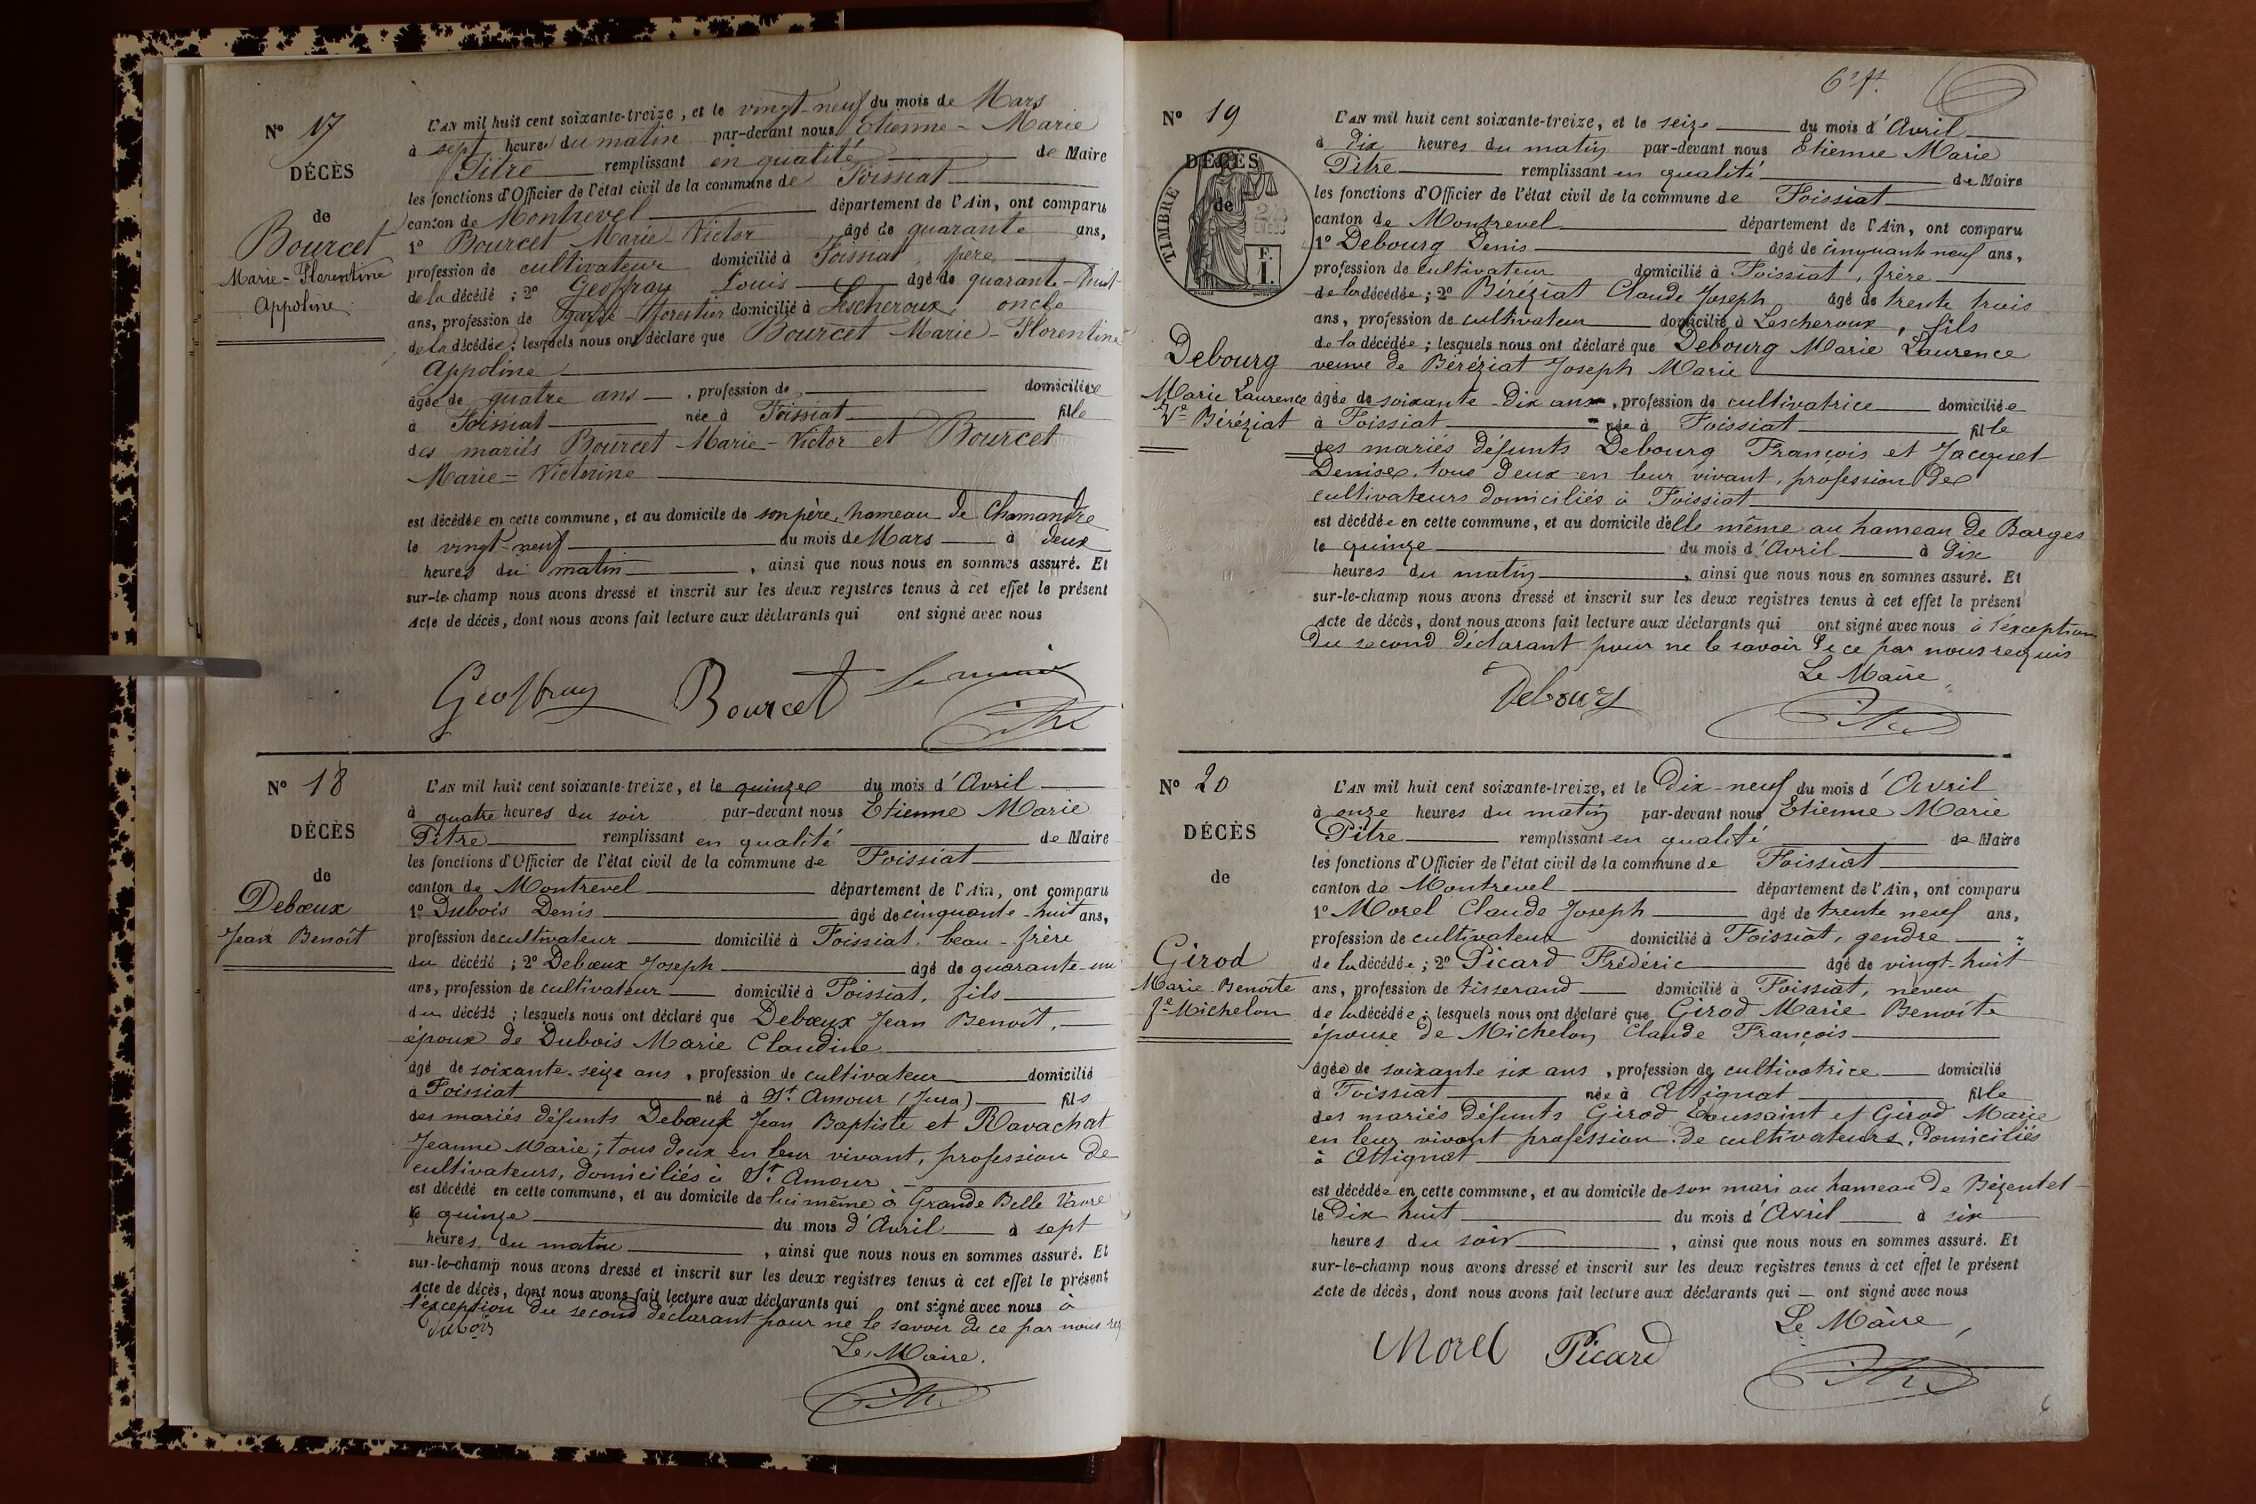 N° 17
DÉCÈS
de
Bourcet
Marie-Florentine
Appoline
L'AN mil huit cent soixante-treize, et le vingt-neuf du mois de Mars
à sept heures du matin par-devant nous Etienne-Marie
Pitre remplissant en qualité de Maire
les fonctions d'Officier de l'état civil de la commune de Foissiat
canton de Montrevel département de l'Ain, ont comparu
1° Bourcet Marie-Victor âgé de quarante ans,
profession de cultivateur domicilié à Foissiat, père
de la décédé ; 2° Geoffray Louis âgé de quarante-huit
ans, profession de garde-forestier domicilié à Lescheroux, oncle
de la décédée ; lesquels nous ont déclaré que Bourcet Marie-Florentine
Appoline
âgée de quatre ans, profession de domiciliée
à Foissiat née à Foissiat fille
des mariés Bourcet-Marie-Victor et Bourcet
Marie=Victorine
est décédée en cette commune, et au domicile de son père, hameau de Chamandre
le vingt-neuf du mois de Mars à deux
heures du matin, ainsi que nous nous en sommes assuré. Et
sur-le-champ nous avons dressé et inscrit sur les deux registres tenus à cet effet le présent
Acte de décès, dont nous avons fait lecture aux déclarants qui ont signé avec nous
Geoffray Bourcet Le maire
Pitre
N° 18
DÉCÈS
de
Debœux
Jean Benoît
L'AN mil huit cent soixante-treize, et le quinze du mois d'Avril
à quatre heures du soir par-devant nous Etienne Marie
Pitre remplissant en qualité de Maire
les fonctions d'Officier de l'état civil de la commune de Foissiat
canton de Montrevel département de l'Ain, ont comparu
1° Dubois Denis âgé de cinquante-huit ans,
profession de cultivateur domicilié à Foissiat, beau-frère
du décédé ; 2° Debœux Joseph âgé de quarante-un
ans, profession de cultivateur domicilié à Foissiat, fils
du décédé ; lesquels nous ont déclaré que Debœux Jean Benoît,
époux de Dubois Marie Claudine
âgé de soixante-seize ans, profession de cultivateur domicilié
à Foissiat né à St. Amour (Jura) fils
des mariés défunts Debœuf Jean Baptiste et Ravachat
Jeanne Marie ; tous deux en leur vivant, profession de
cultivateurs, domiciliés à St. Amour
est décédé en cette commune, et au domicile de lui même à Grande Belle Vavre
le quinze du mois d'Avril à sept
heures du matin, ainsi que nous nous en sommes assuré. Et
sur-le-champ nous avons dressé et inscrit sur les deux registres tenus à cet effet le présent
Acte de décès, dont nous avons fait lecture aux déclarants qui ont signé avec nous à
l'exception du second déclarant pour ne le savoir de ce par nous req
Dubois
Le Maire.
Pitre
6e ft.
N° 19
DÉCÈS
de
TIMBRE
F.
1.
Debourg
Marie Laurence
Ve Béréziat
L'AN mil huit cent soixante-treize, et le seize du mois d'Avril
à dix heures du matin par-devant nous Etienne Marie
Pitre remplissant en qualité de Maire
les fonctions d'Officier de l'état civil de la commune de Foissiat
canton de Montrevel département de l'Ain, ont comparu
1° Debourg Denis âgé de cinquante neuf ans,
profession de cultivateur domicilié à Foissiat, frère
de la décédée ; 2° Béréziat Claude Joseph âgé de trente trois
ans, profession de cultivateur domicilié à Lescheroux, fils
de la décédée ; lesquels nous ont déclaré que Debourg Marie Laurence
veuve de Béréziat Joseph Marie
âgée de soixante-dix ans, profession de cultivatrice domiciliée
à Foissiat née à Foissiat fille
des mariés défunts Debourg François et Jacquet
Denise, tous deux en leur vivant, profession de
cultivateurs domiciliés à Foissiat
est décédée en cette commune, et au domicile d'elle même au hameau de Barges
le quinze du mois d'Avril à dix
heures du matin, ainsi que nous nous en sommes assuré. Et
sur-le-champ nous avons dressé et inscrit sur les deux registres tenus à cet effet le présent
Acte de décès, dont nous avons fait lecture aux déclarants qui ont signé avec nous à l'exception
du second déclarant pour ne le savoir de ce par nous requis
Le Maire
Debourg
Pitre
N° 20
DÉCÈS
de
Girod
Marie Benoite
fe Michelon
L'AN mil huit cent soixante-treize, et le dix-neuf du mois d'Avril
à onze heures du matin par-devant nous Etienne Marie
Pitre remplissant en qualité de Maire
les fonctions d'Officier de l'état civil de la commune de Foissiat
canton de Montrevel département de l'Ain, ont comparu
1° Morel Claude Joseph âgé de trente neuf ans,
profession de cultivateur domicilié à Foissiat, gendre
de la décédée ; 2° Picard Frédéric âgé de vingt-huit
ans, profession de tisserand domicilié à Foissiat, neveu
de la décédée ; lesquels nous ont déclaré que Girod Marie Benoite
épouse de Michelon Claude François
âgée de soixante six ans, profession de cultivatrice domicilié
à Foissiat née à Attignat fille
des mariés défunts Girod Toussaint et Girod Marie
en leur vivant profession de cultivateurs, domiciliés
à Attignat
est décédée en cette commune, et au domicile de son mari au hameau de Bézentet
le dix huit du mois d'Avril à six
heures du soir, ainsi que nous nous en sommes assuré. Et
sur-le-champ nous avons dressé et inscrit sur les deux registres tenus à cet effet le présent
Acte de décès, dont nous avons fait lecture aux déclarants qui — ont signé avec nous
Le Maire,
Morel Picard
Pitre
6